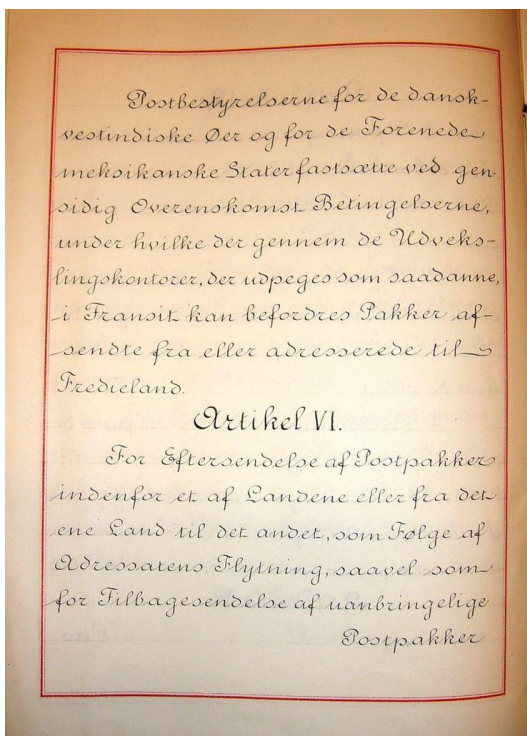 Postbestyrelserne for de dansk-
vestindiske Øer og for de Forenede
meksikanske Stater fastsætte ved gen-
sidig Overenskomst Betingelserne,
under hvilke der gennem de Udveks-
lingskontorer, der udpeges som saadanne,
i Transit kan befordres Pakker af-
sendte fra eller adresserede til
Tredieland.
Artikel VI.
For Eftersendelse af Postpakker
indenfor et af Landene eller fra det
ene Land til det andet, som Følge af
Adressatens Flytning, saavel som
for Tilbagesendelse af uanbringelige
Postpakker